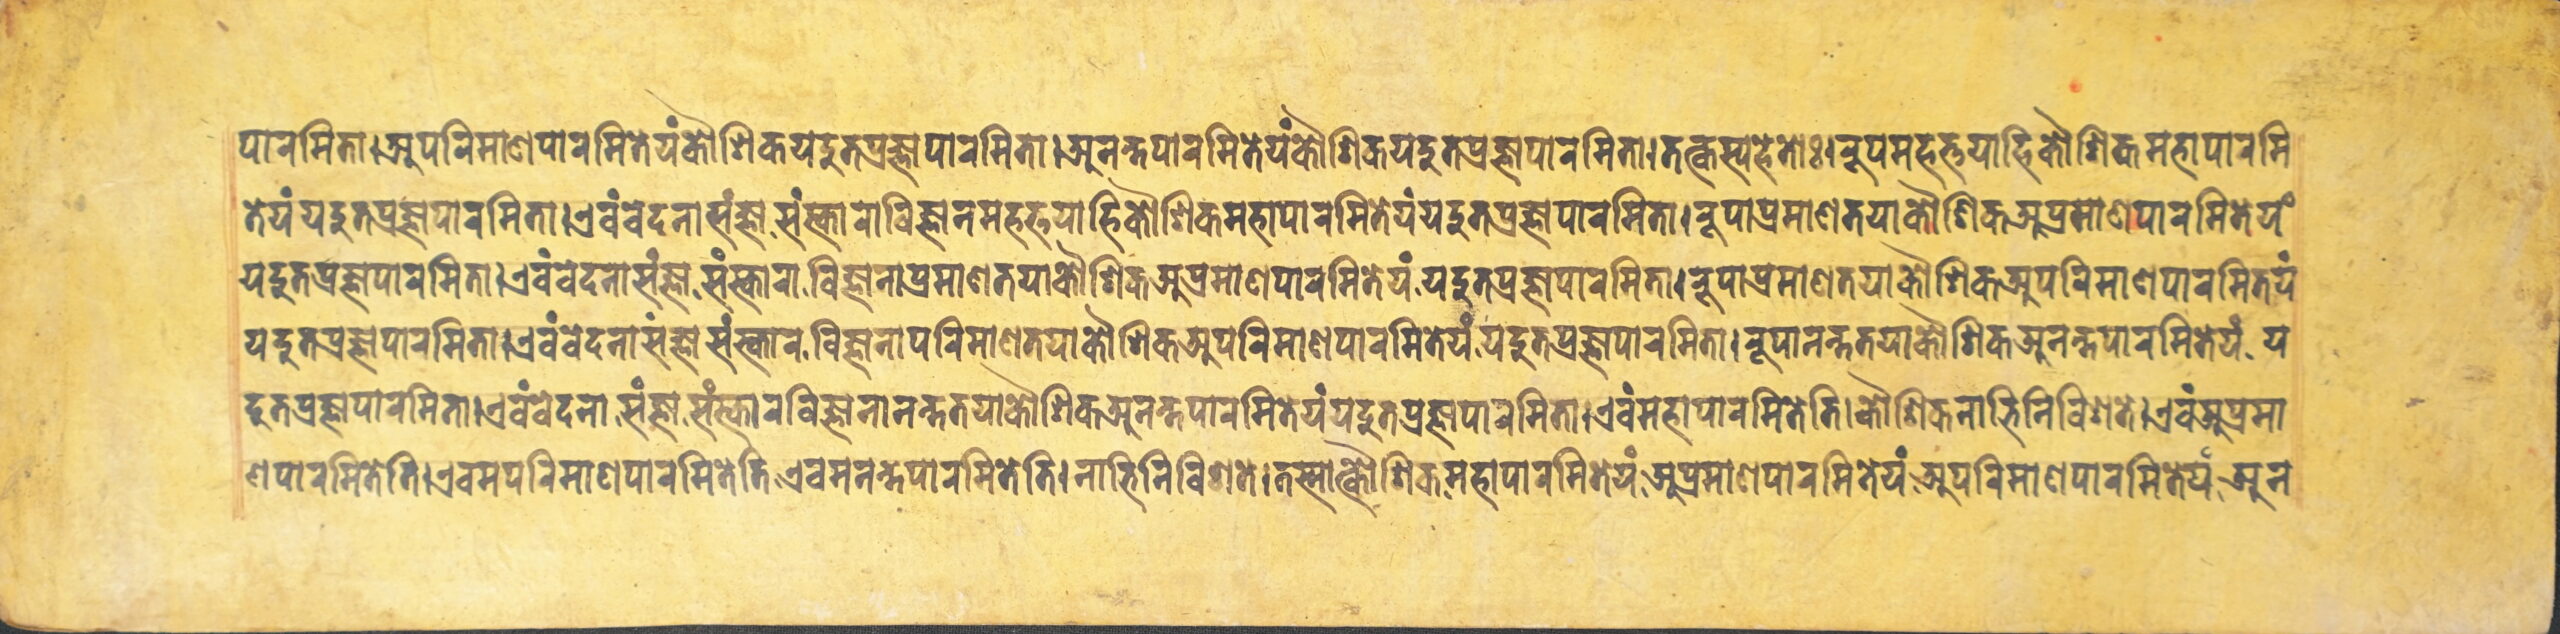 पारमिता।अपरिमाणपारमितेयंकौशिकयदुतप्रज्ञापारमिता।अनन्तपारमितेयंकौशिकयदुतप्रज्ञापारमिता।तत्कस्यहेतोः।रूपमहत्तयाहिकौशिकमहापारमि
तेयंयदुतप्रज्ञापारमिता।एवंवेदनासंज्ञासंस्काराविज्ञानमहत्तयाहिकौशिकमहापारमितेयंयदुतप्रज्ञापारमिता।रूपाप्रमाणतयाकौशिकअप्रमाणपारमितेयं
यदुतप्रज्ञापारमिता।एवंवेदनासंज्ञासंस्काराविज्ञानाप्रमाणतयाकौशिकअप्रमाणपारमितेयंयदुतप्रज्ञापारमिता।रूपाप्रमाणतयाकौशिकअपरिमाणपारमितयं
यदुतप्रज्ञापारमिता।एवंवेदनासंज्ञासंस्कारविज्ञानापरिमाणतयाकौशिकअपरिमाणपारमितेयंयदुतप्रज्ञापारमिता।रूपानन्ततयाकौशिकअनन्तपारमितेयंय
दुतप्रज्ञापारमिता।एवंवेदनासंज्ञासंस्कारविज्ञानानन्ततयाकौशिकअनन्तपारमितेयंयदुतप्रज्ञापारमिता।एवंमहापारमितेति।कौशिकनाभिनिविशते।एवंअप्रमा
णपारमितेति।एवमपरिमाणपारमितेतिएवमनन्तपारमितेति।नाभिनिविशते।तस्मात्कौशिकमहापारमितेयंअप्रमाणपारमितेयंअपरिमाणपारमितेयंअन